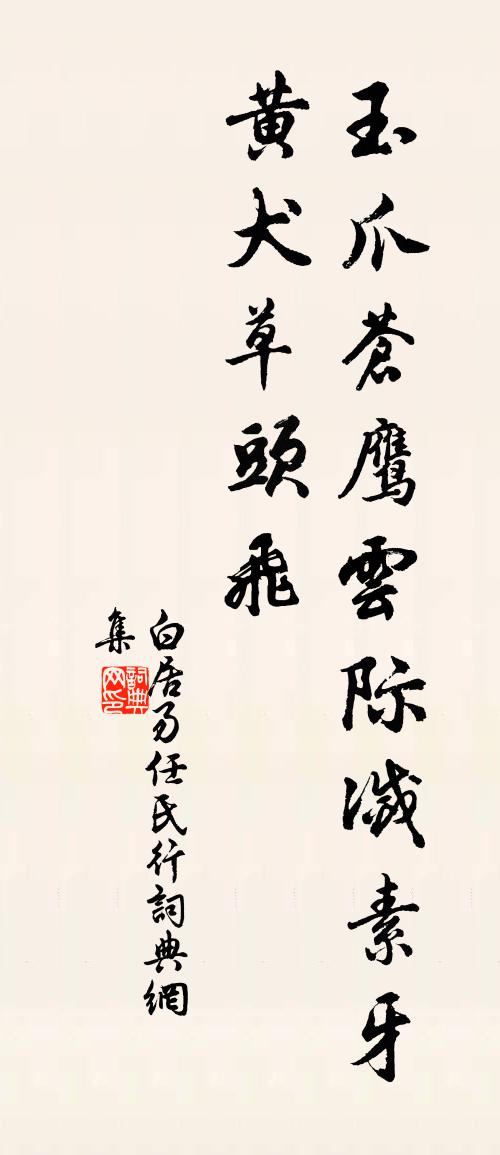 玉爪蒼鷹雲际滅素牙
黄犬草頭飛
白居易任氏行詞典網
集
詞典网印